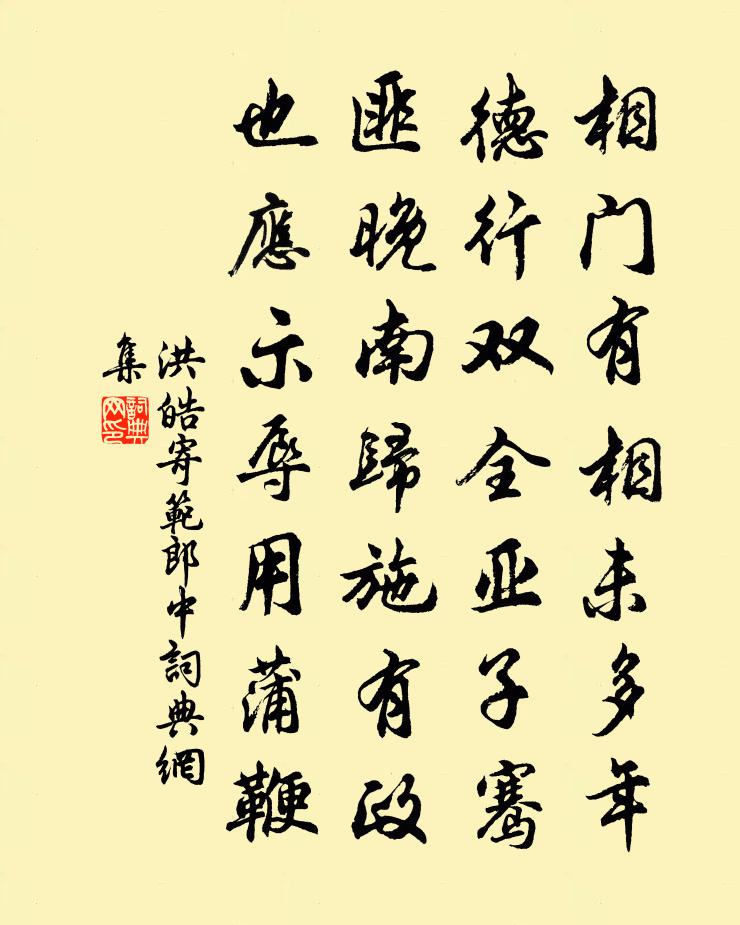 相门有相未多年
德行双全亚子骞
匪晚南歸施有政
也應示辱用蒲鞭
洪皓寄範郎中詞典網
集
詞典
网印